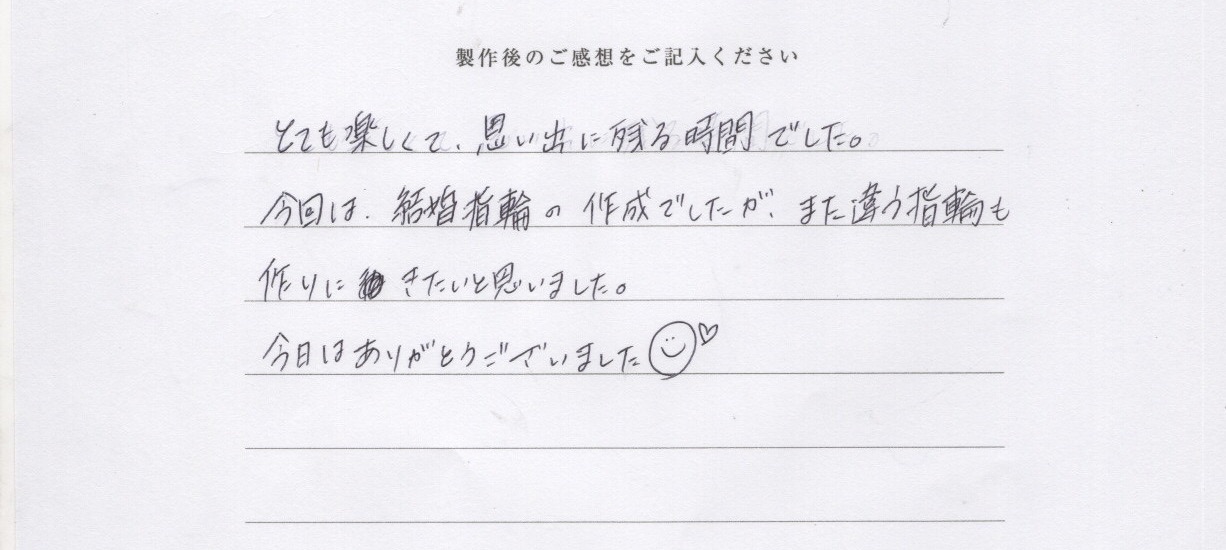 製作後のご感想をご記入ください
とても楽しくて、思い出に残る時間でした。
今回は、結婚指輪の作成でしたが、また違う指輪も
作りにきたいと思いました。
今日はありがとうございました